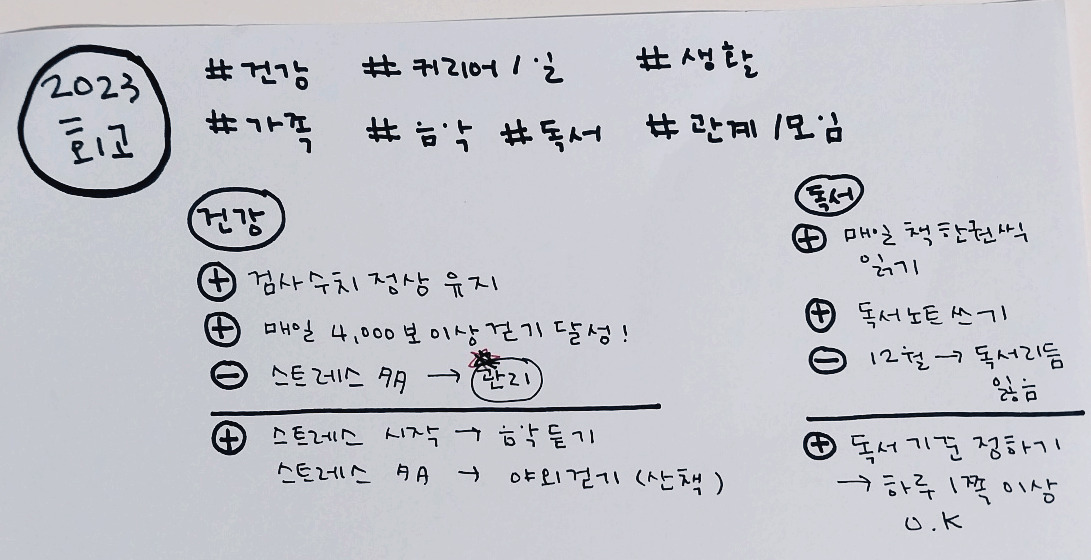 2023
회고
#건강 #커리어/일 #생활
#가족 #음악 #독서 #관계/모임
건강
⊕ 검사수치 정상 유지
⊕ 매일 4,000보 이상 걷기 달성!
⊖ 스트레스 → 관리
⊕ 스트레스 시작 → 음악 듣기
스트레스 → 야외걷기 (산책)
독서
⊕ 매일 책 한권씩
읽기
⊕ 독서노트 쓰기
⊖ 12월 → 독서리듬
잃음
⊕ 독서 기준 정하기
→ 하루 1쪽 이상
O.K